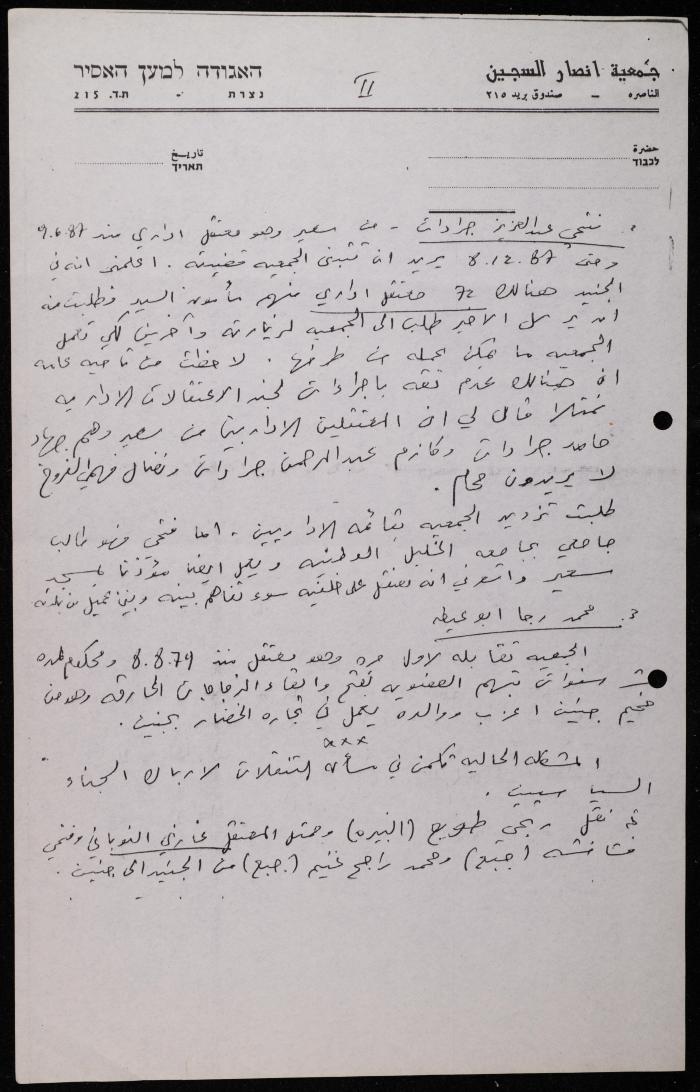 האגודה למען האסיר
جمعية انصار السجين
נצרת - ת.ד. 215
II
الناصره - صندوق بريد ٢١٥
تاريخ
תאריך
حضرة
לכבוד
فتحي عبدالعزيز جرادات - من سعير وهو معتقل اداري منذ 9.6.87
وحتى 8.12.87 يريد ان تتبنى الجمعيه قضيته . اعلمني انه في
الجنيد هنالك 72 معتقل اداري منهم مأمون السيد وطلبت منه
ان يرسل الاخير طلب الى الجمعيه لزيارته وآخرين لكي تعمل
الجمعيه ما يمكن عمله من طرفها . لاحظت من ناحيه عامه
ان هنالك عدم ثقه باجراءات لجنه الاعتقالات الاداريه
فمثلا قال لي ان المعتقلين الاداريين من سعير وهم جهاد
حامد جرادات وكازم عبدالرحمن جرادات ونضال فهمي الفروخ
لا يريدون محام .
طلبت تزويد الجمعيه بقائمه الاداريين . اما فتحي فهو طالب
جامعي بجامعه الخليل الوطنيه ويعمل ايضا مؤذنا لمسجد
سعير واشعرني انه معتقل على خلفيه سوء تفاهم بينه وبين عميل من بلدته
محمد رجا ابو عيطه
الجمعيه تقابله لاول مره وهو معتقل منذ 8.8.79 ومحكوم لمده
سنوات بتهم العضويه بفتح والقاء الزجاجات الحارقه وهو من
مخيم جنين اعزب ووالده يعمل في تجاره الخضار بجنين .
×××
المشكله الحاليه تكمن في مسأله التنقلات لارباك السجناء
السياسيين .
تم نقل ربحي (البيره) وممثل المعتقل غازي النوباني وفتحي
(جبع) ومحمد راجح غنيم (جبع) من الجنيد الى جنين .